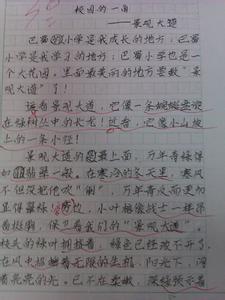 校园的一角
——景观大道
巴蜀小学是我成长的地方；巴蜀
小学是我学习的地方，巴蜀小学也是一
个大花园。里面最美丽的地方要数“景
观大道”了！
远看景观大道，它像一条蜿蜒
在绿树丛中的长龙！近看，它像小山坡
上的一条小径！
景观大道的最上面，万年青绿得
如翡翠一般。在寒冷的冬天里，寒风
不但没把他吹“倒”，万年青反而更加
显得翠绿，小叶都像战士一样昂
首挺胸，保卫着我们的“景观大道”。
枝头的绿叶拥挤着，绿色已经放不开了，
在风中摇着无限的生机，阳光下，闪
着亮亮的光。已不在柔嫩，深绿预示着